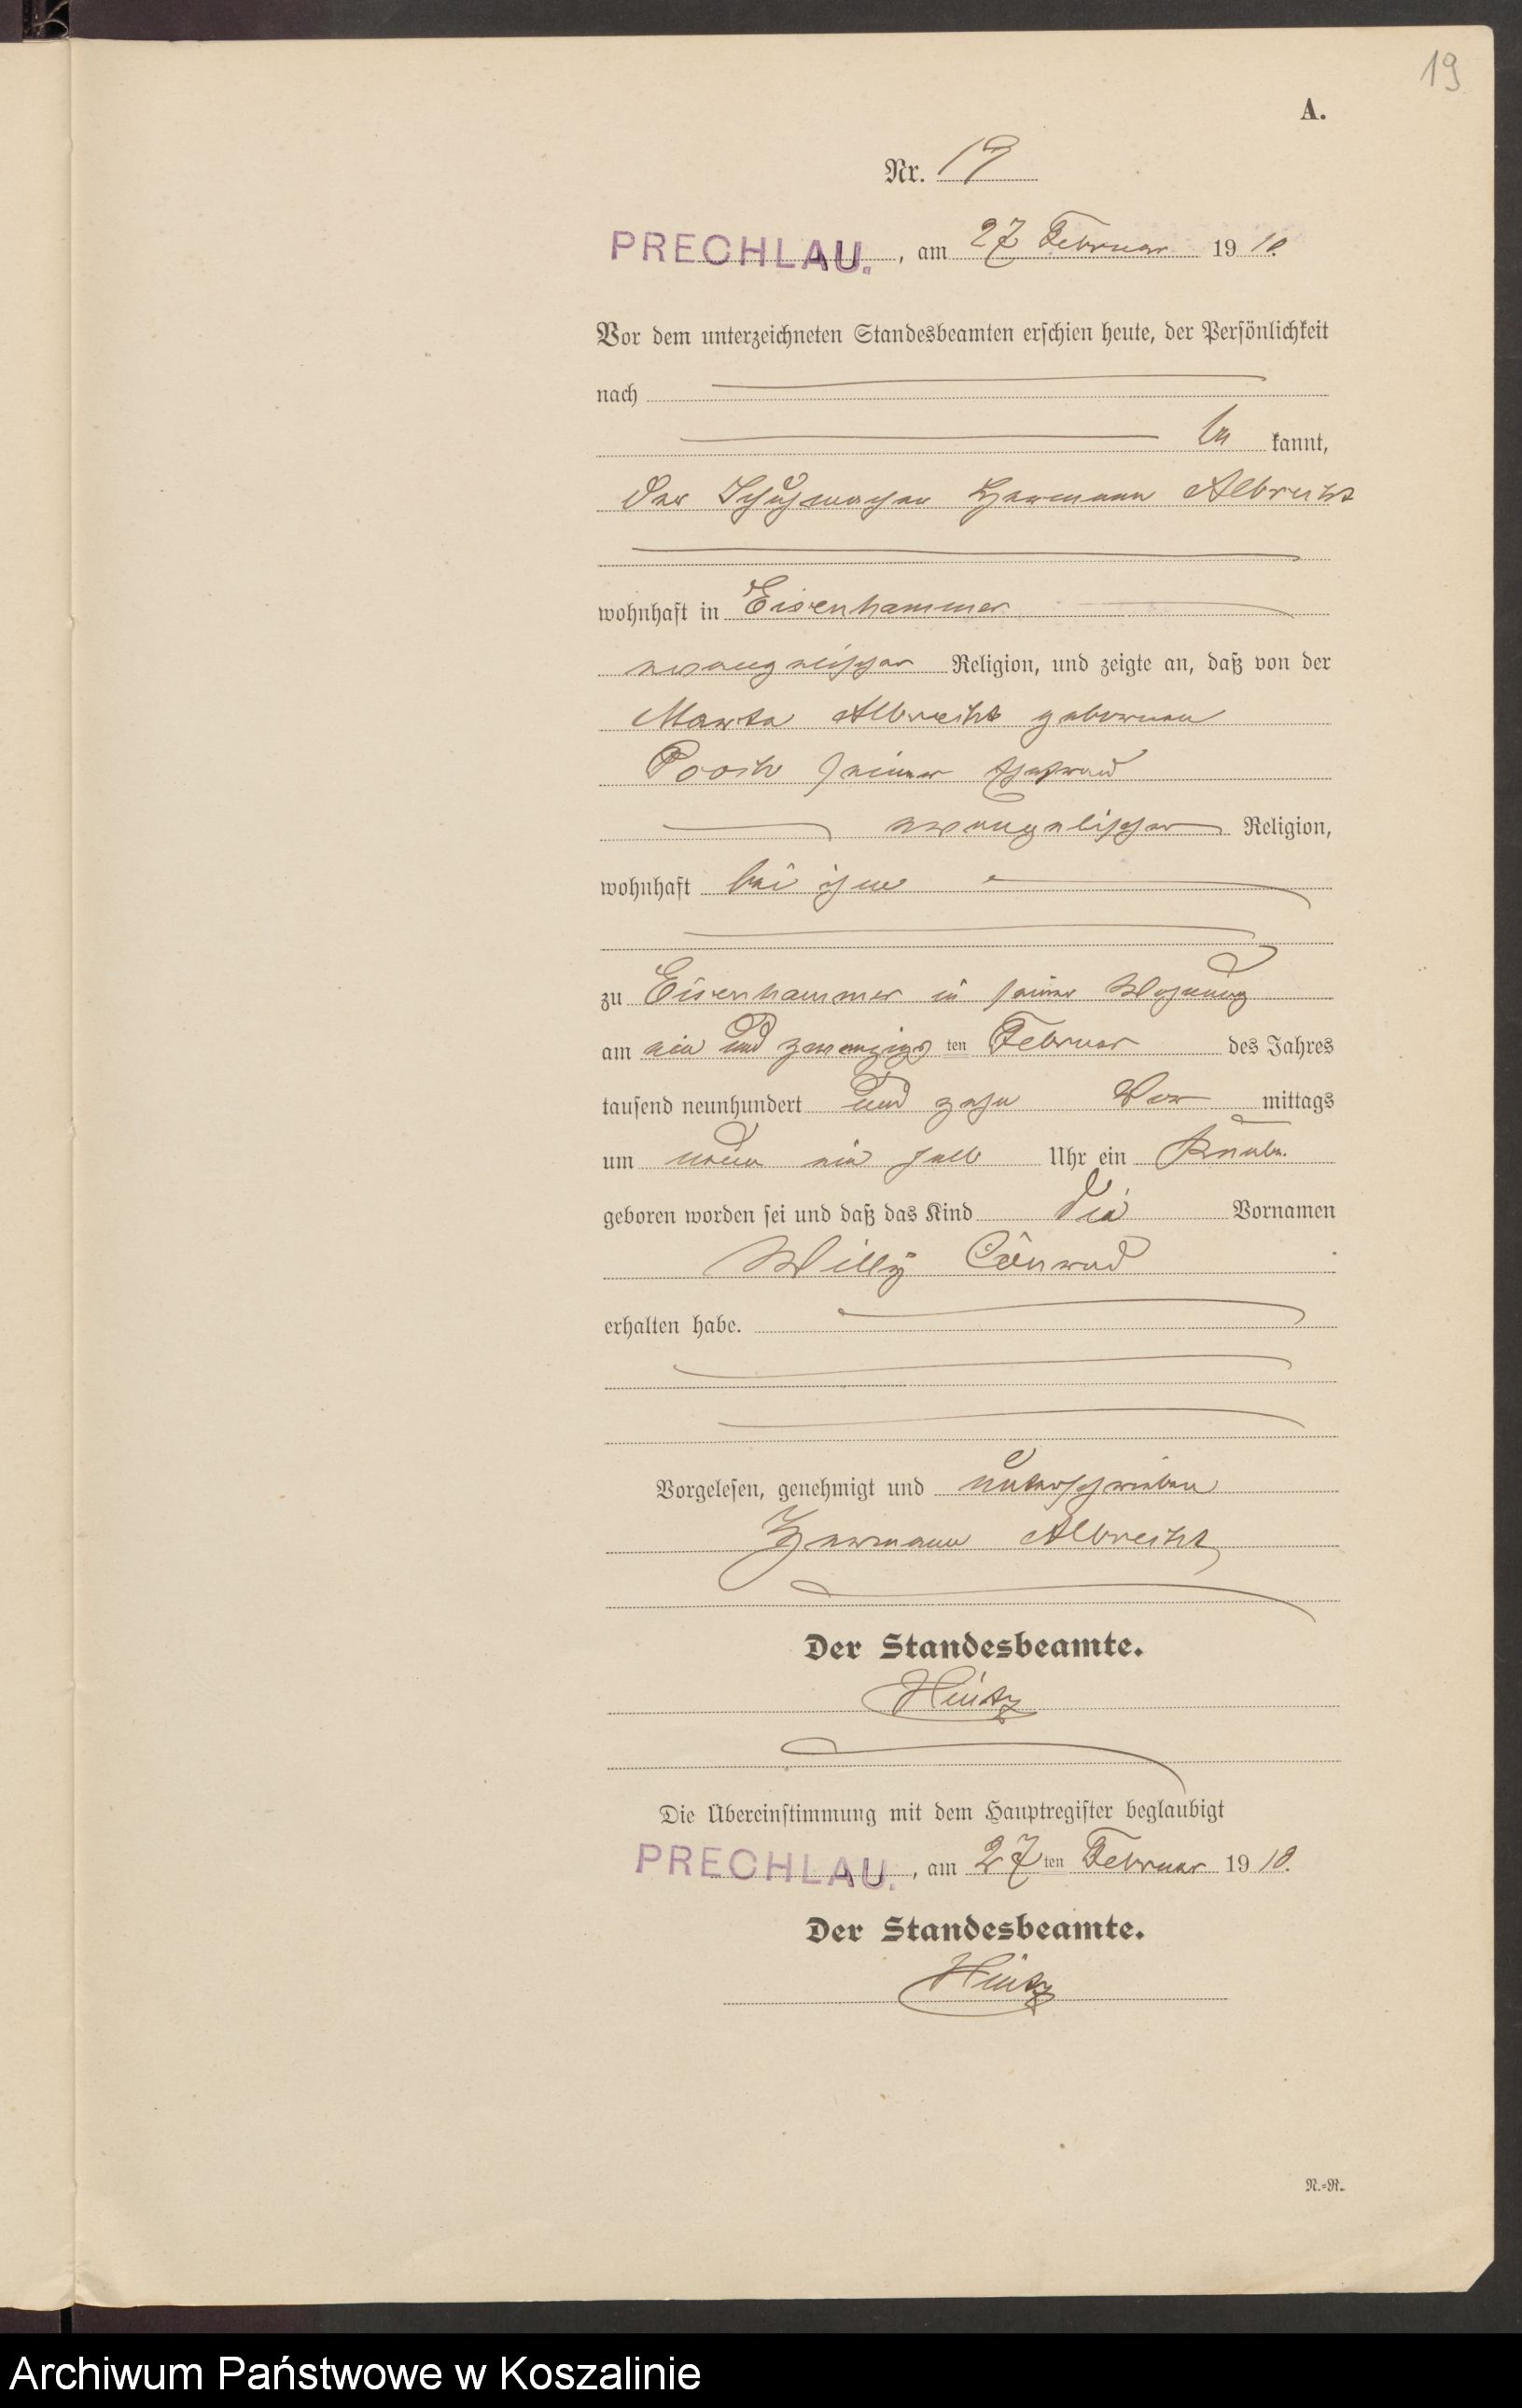 19
A.
Nr. 19
PRECHLAU. , am 27 Februar 19 10.
Vor dem unterzeichneten Standesbeamten erschien heute, der Persönlichkeit
nach
be kannt,
der Schuhmacher Hermann Albrecht
wohnhaft in Eisenhammer
evangelischer Religion, und zeigte an, daß von der
Marta Albrecht geborenen
seiner Ehefrau
evangelischer Religion,
wohnhaft bei ihm
zu Eisenhammer in seiner Wohnung
am ein und zwanzigs ten Februar des Jahres
tausend neunhundert und zehn Vor mittags
um neun ein halb Uhr ein Knabe
geboren worden sei und daß das Kind die Vornamen
Willy Conrad
erhalten habe.
Vorgelesen, genehmigt und unterschrieben
Hermann Albrecht
Der Standesbeamte.
Hintz
Die Übereinstimmung mit dem Hauptregister beglaubigt
PRECHLAU. , am 27 ten Februar 19 10.
Der Standesbeamte.
Hintz
N.=R.
Archiwum Państwowe w Koszalinie